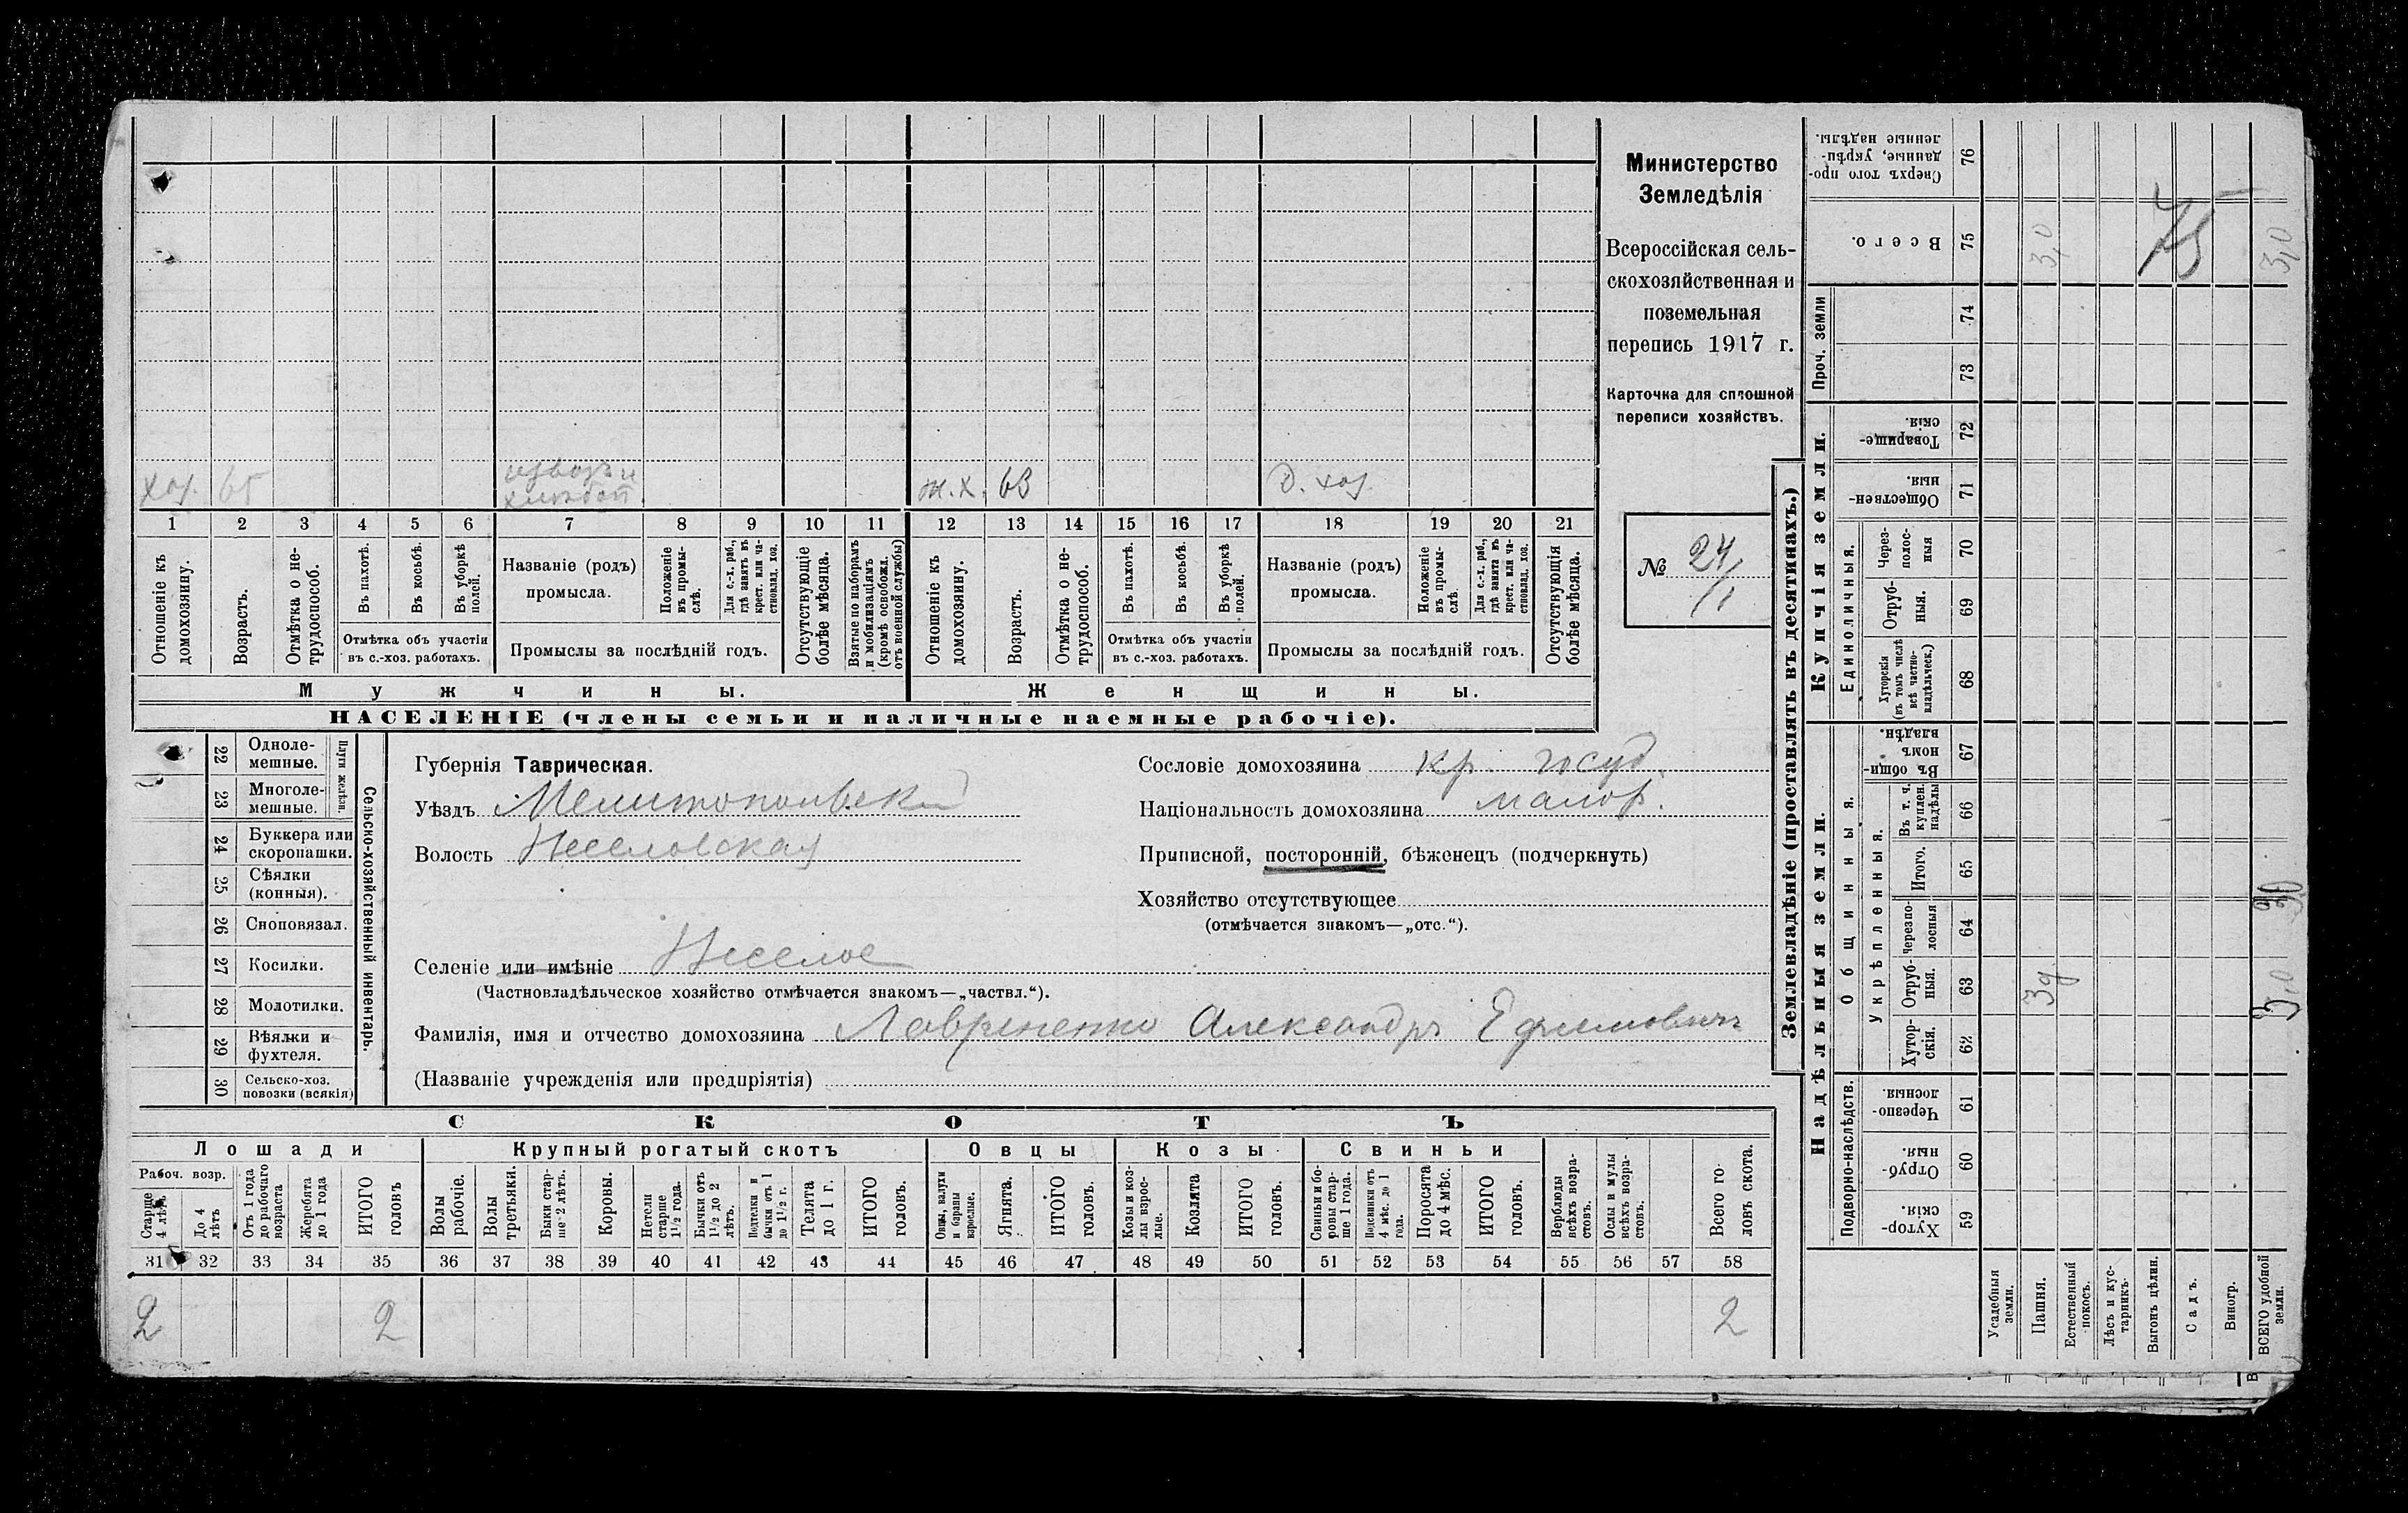 Министерство
Земледѣлія
Всероссійская сель-
скохозяйственная и
поземельная
перепись 1917 г.
Карточка для сплошной
переписи хозяйствъ.
№ 24/1
хоз. 65 извозъ и
ж.х. 63 д. хоз.
1 2 3 4 5 6 7 8 9 10 11 12 13 14 15 16 17 18 19 20 21
Отношеніе къ домохозяину.
Возрастъ.
Отмѣтка о не-трудоспособ.
Въ пахотѣ.
Въ косьбѣ.
Въ уборкѣ полей.
Отмѣтка объ участіи въ с.-хоз. работахъ.
Названіе (родъ) промысла.
Положеніе въ промы-слѣ.
Для с.-х. раб., гдѣ занятъ въ крест. или ча-стновлад. хоз.
Промыслы за послѣдній годъ.
Отсутствующіе болѣе мѣсяца.
Взятые по наборамъ и мобилизаціямъ (кромѣ освобожд. отъ военной службы)
Отношеніе къ домохозяину.
Возрастъ.
Отмѣтка о не-трудоспособ.
Въ пахотѣ.
Въ косьбѣ.
Въ уборкѣ полей.
Отмѣтка объ участіи въ с.-хоз. работахъ.
Названіе (родъ) промысла.
Положеніе въ промы-слѣ.
Для с.-х. раб., гдѣ занята въ крест. или ча-стновлад. хоз.
Промыслы за послѣдній годъ.
Отсутствующія болѣе мѣсяца.
Мужчины.
Женщины.
НАСЕЛЕНІЕ (члены семьи и наличные наемные рабочіе).
22 Одноле-мешные.
23 Многоле-мешные.
Плуги желѣзн.
24 Буккера или скоропашки.
25 Сѣялки (конныя).
26 Сноповязал.
27 Косилки.
28 Молотилки.
29 Вѣялки и фухтеля.
30 Сельско-хоз. повозки (всякія)
Сельско-хозяйственный инвентарь.
Губернія Таврическая.
Уѣздъ Мелитопольскій
Волость Веселовская
Селеніе или имѣніе Веселое
(Частновладѣльческое хозяйство отмѣчается знакомъ—„частвл.“).
Фамилія, имя и отчество домохозяина Лавриненко Александръ Ефимовичъ
(Названіе учрежденія или предпріятія)
Сословіе домохозяина кр. госуд.
Національность домохозяина малор.
Приписной, посторонній, бѣженецъ (подчеркнуть)
Хозяйство отсутствующее
(отмѣчается знакомъ—„отс.“).
СКОТЪ
Лошади
Крупный рогатый скотъ
Овцы
Козы
Свиньи
Рабоч. возр.
Старше 4 лѣтъ
До 4 лѣтъ
Отъ 1 года до рабочаго возраста
Жеребята до 1 года
ИТОГО головъ
Волы рабочіе.
Волы третьяки.
Быки стар-ше 2 лѣтъ.
Коровы.
Нетели старше 1½ года.
Бычки отъ 1½ до 2 лѣтъ.
Подтелки и бычки отъ 1 до 1½ г.
Телята до 1 г.
ИТОГО головъ.
Овцы, валухи и бараны взрослые.
Ягнята.
ИТОГО головъ.
Козы и коз-лы взрос-лые.
Козлята
ИТОГО головъ.
Свиньи и бо-ровы стар-ше 1 года.
Подсвинки отъ 4 мѣс. до 1 года.
Поросята до 4 мѣс.
ИТОГО головъ.
Верблюды всѣхъ возра-стовъ.
Ослы и мулы всѣхъ возра-стовъ.
Всего го-ловъ скота.
31 32 33 34 35 36 37 38 39 40 41 42 43 44 45 46 47 48 49 50 51 52 53 54 55 56 57 58
2 2 2
Землевладѣніе (проставлять въ десятинахъ.)
Надѣльныя земли.
Купчія земли.
Проч. земли
Подворно-наслѣдств.
Общинныя.
Укрѣпленныя.
Единоличныя.
Сверхъ того про-данные, укрѣп-ленные надѣлы. 76
Всего. 75
74
73
Товарище-скія. 72
Обществен-ныя. 71
Через-полос-ныя 70
Отруб-ныя. 69
Хуторскія (въ томъ числѣ всѣ частно-владѣльческ.) 68
Въ общин-номъ владѣн. 67
Въ т. ч. куплен. надѣлы 66
Итого. 65
Черезпо-лосныя 64
Отруб-ныя. 63
Хутор-скія. 62
Черезпо-лосныя. 61
Отруб-ныя. 60
Хутор-скія. 59
Усадебныя земли.
Пашня.
Естественный покосъ.
Лѣсъ и кус-тарникъ.
Выгонъ цѣлин.
Садъ.
Виногр.
ВСЕГО удобной земли.
3,0
75
3,0
3,0